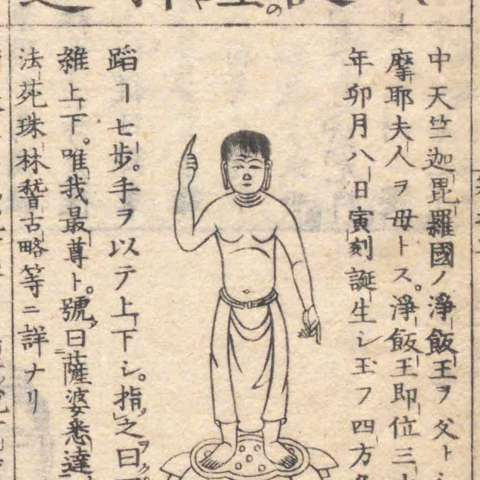 中天竺迦毘羅國ノ淨飯王ヲ父トシ
摩耶夫人ヲ母トス。淨飯王即位三十
年卯月八日寅刻誕生シ玉フ四方各
蹈コ七步。手ヲ以テ上下シ。指之曰
雑上下。唯我最尊ト。號曰薩婆悉達
法苑珠林稽古略等ニ詳ナリ